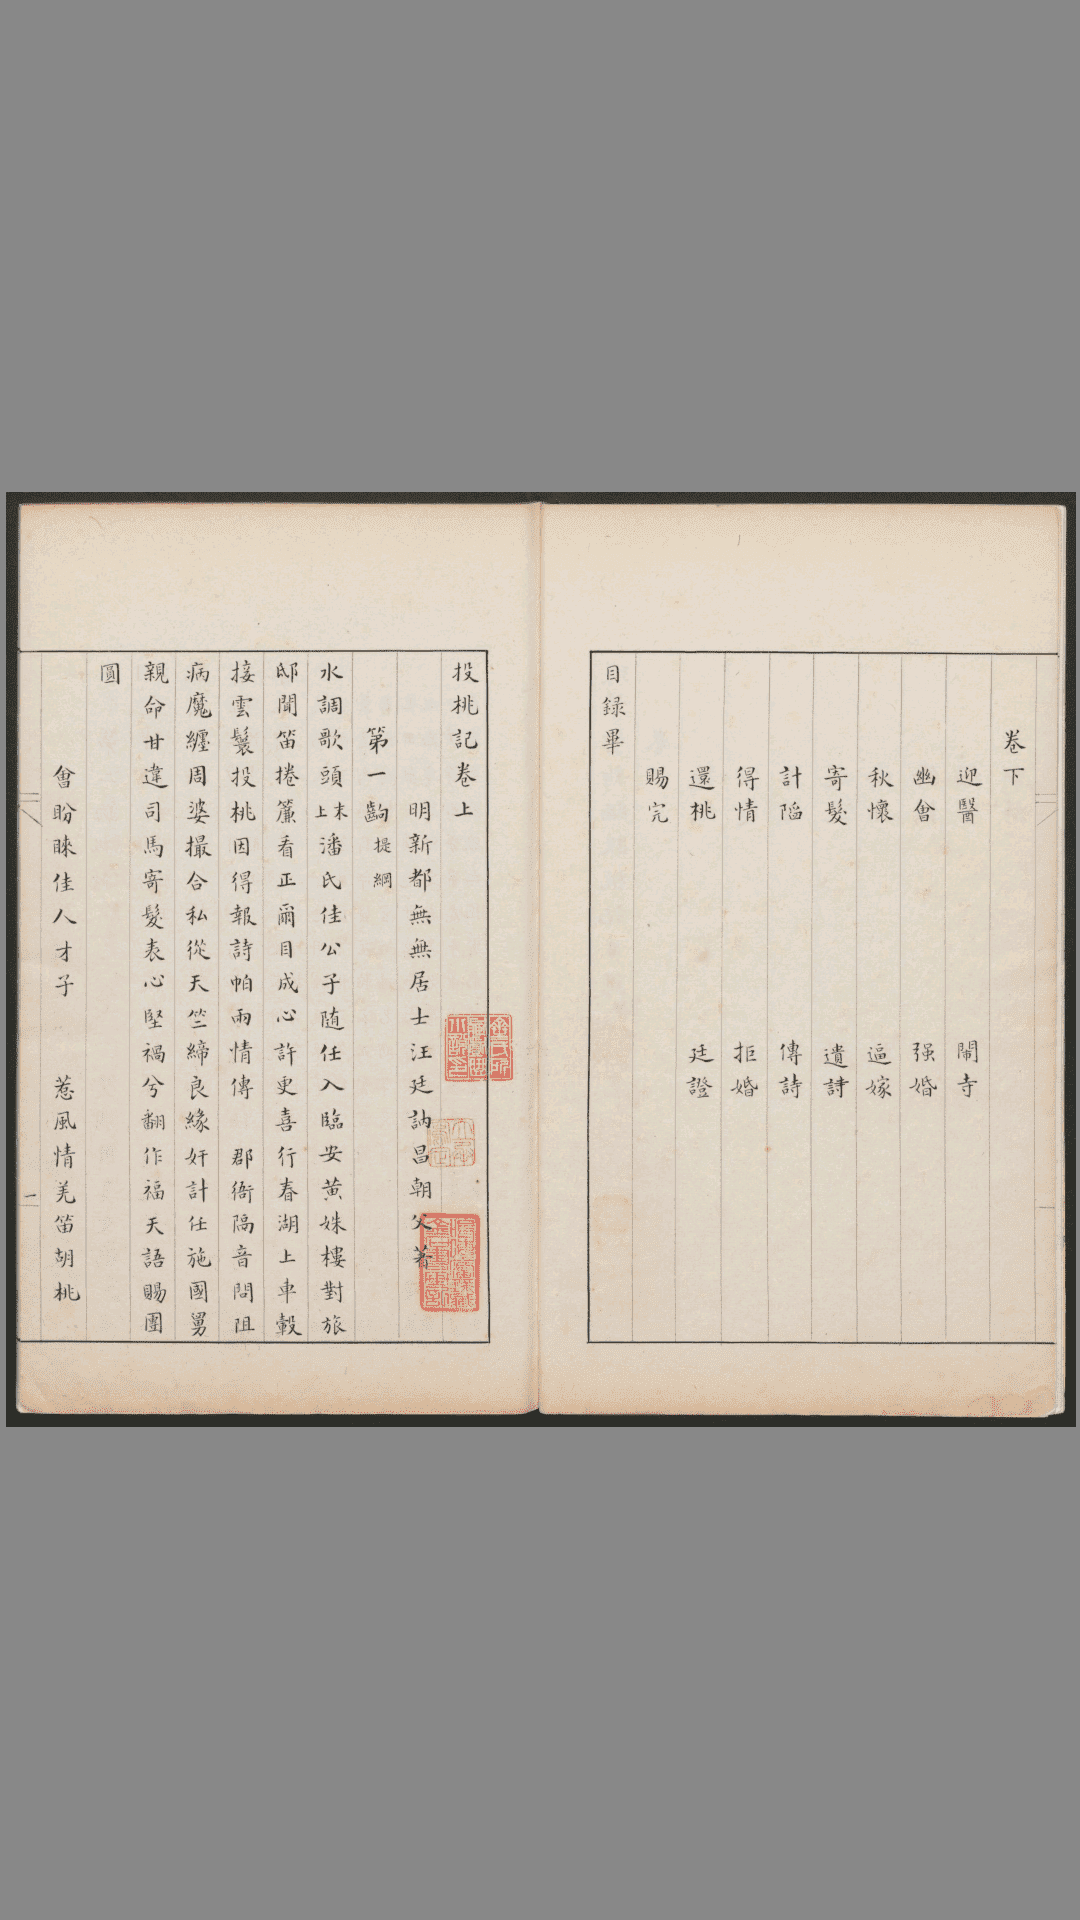 卷下
迎醫 鬧寺
幽會 强婚
秋懷 逼嫁
寄髮 遺詩
計陷 傳詩
得情 拒婚
還桃 廷證
賜完
目録畢
投桃記卷上
明新都無無居士汪廷訥昌朝父著
第一齣 提綱
水調歌頭 末上 潘氏佳公子随任入臨安黄姝樓對旅
邸聞笛捲簾看正爾目成心許更喜行春湖上車轂
接雲鬟投桃因得報詩帕兩情傳 郡衙隔音問阻
病魔纏周婆撮合私從天竺締良緣奸計任施國舅
親命甘違司馬寄髮表心堅禍兮翻作福天語賜團
圓
會盼睞佳人才子 惹風情羌笛胡桃
一